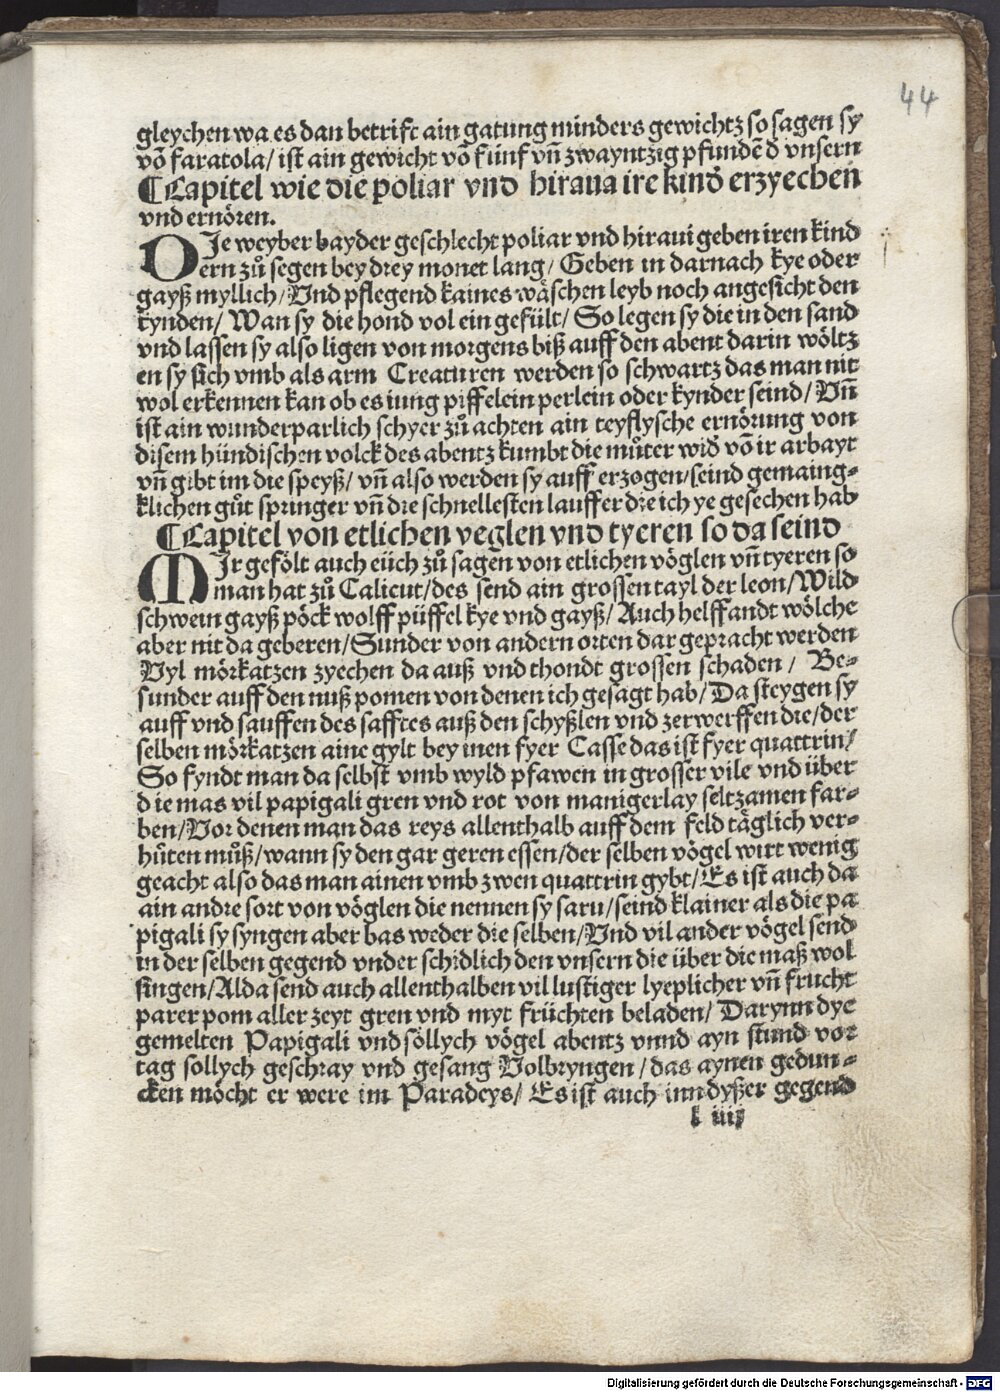 44
gleychen wa es dan betrift ain gatung minders gewichtz so sagen sy
võ faratola/ ist ain gewicht võ fünf vñ zwayntzig pfundẽ d̕ vnsern
¶Capitel wie die poliar vnd hiraua ire kind̕ erzyechen
vnd ernören.
DJe weyber bayder geschlecht poliar vnd hiraui geben iren kind
ern zů segen bey drey monet lang/ Geben in darnach kye oder
gayß myllich/ Vnd pflegend kaines wäschen leyb noch angesicht den
kynden/ Wan sy die hond vol ein gefült/ So legen sy die in den sand
vnd lassen sy also ligen von morgens biß auff den abent darin wöltz
en sy sich vmb als arm Creaturen werden so schwartz das man nit
wol erkennen kan ob es iung piffelein perlein oder kynder seind/ Vñ
ist ain wunderparlich schyer zů achten ain teyflysche ernörung von
disem hündischen volck des abentz kumbt die můter wid̕ võ ir arbayt
vñ gibt im die speyß/ vñ also werden sy auff erzogen/ seind gemaing⸗
klichen gůt springer vñ die schnellesten lauffer die ich ye gesechen hab
¶Capitel von etlichen veglen vnd tyeren so da seind
MJr gefölt auch eüch zů sagen von etlichen vöglen vñ tyeren so
man hat zů Calicut/ des send ain grossen tayl der leon/ Wild
schwein gayß pöck wolff püffel kye vnd gayß/ Auch helffandt wölche
aber nit da geberen/ Sunder von andern orten dar gepracht werden
Vyl mörkatzen zyechen da auß vnd thondt grossen schaden/ Be⸗
sunder auff den nuß pomen von denen ich gesagt hab/ Da steygen sy
auff vnd sauffen des safftes auß den schyßlen vnd zerwerffen die/ der
selben mörkatzen aine gylt bey inen fyer Casse das ist fyer quattrin/
So fyndt man da selbst vmb wyld pfawen in grosser vile vnd über
die mas vil papigali gren vnd rot von manigerlay seltzamen far⸗
ben/ Vor denen man das reys allenthalb auff dem feld täglich ver⸗
hůten můß/ wann sy den gar geren essen/ der selben vögel wirt wenig
geacht also das man ainen vmb zwen quattrin gybt/ Es ist auch da
ain andre sort von vöglen die nennen sy saru/ seind klainer als die pa
pigali sy syngen aber bas weder die selben/ Vnd vil ander vögel send
in der selben gegend vnder schidlich den vnsern die über die maß wol
singen/ Alda send auch allenthalben vil lustiger lyeplicher vñ frucht
parer pom aller zeyt gren vnd myt früchten beladen/ Darynn dye
gemelten Papigali vnd söllych vögel abentz vnnd ayn stund vor
tag sollych geschray vnd gesang Volbryngen/ das aynen gedun⸗
cken möcht er were im Paradeys/ Es ist auch inn dyßer gegend
l iiij
Digitalisierung gefördert durch die Deutsche Forschungsgemeinschaft - DFG